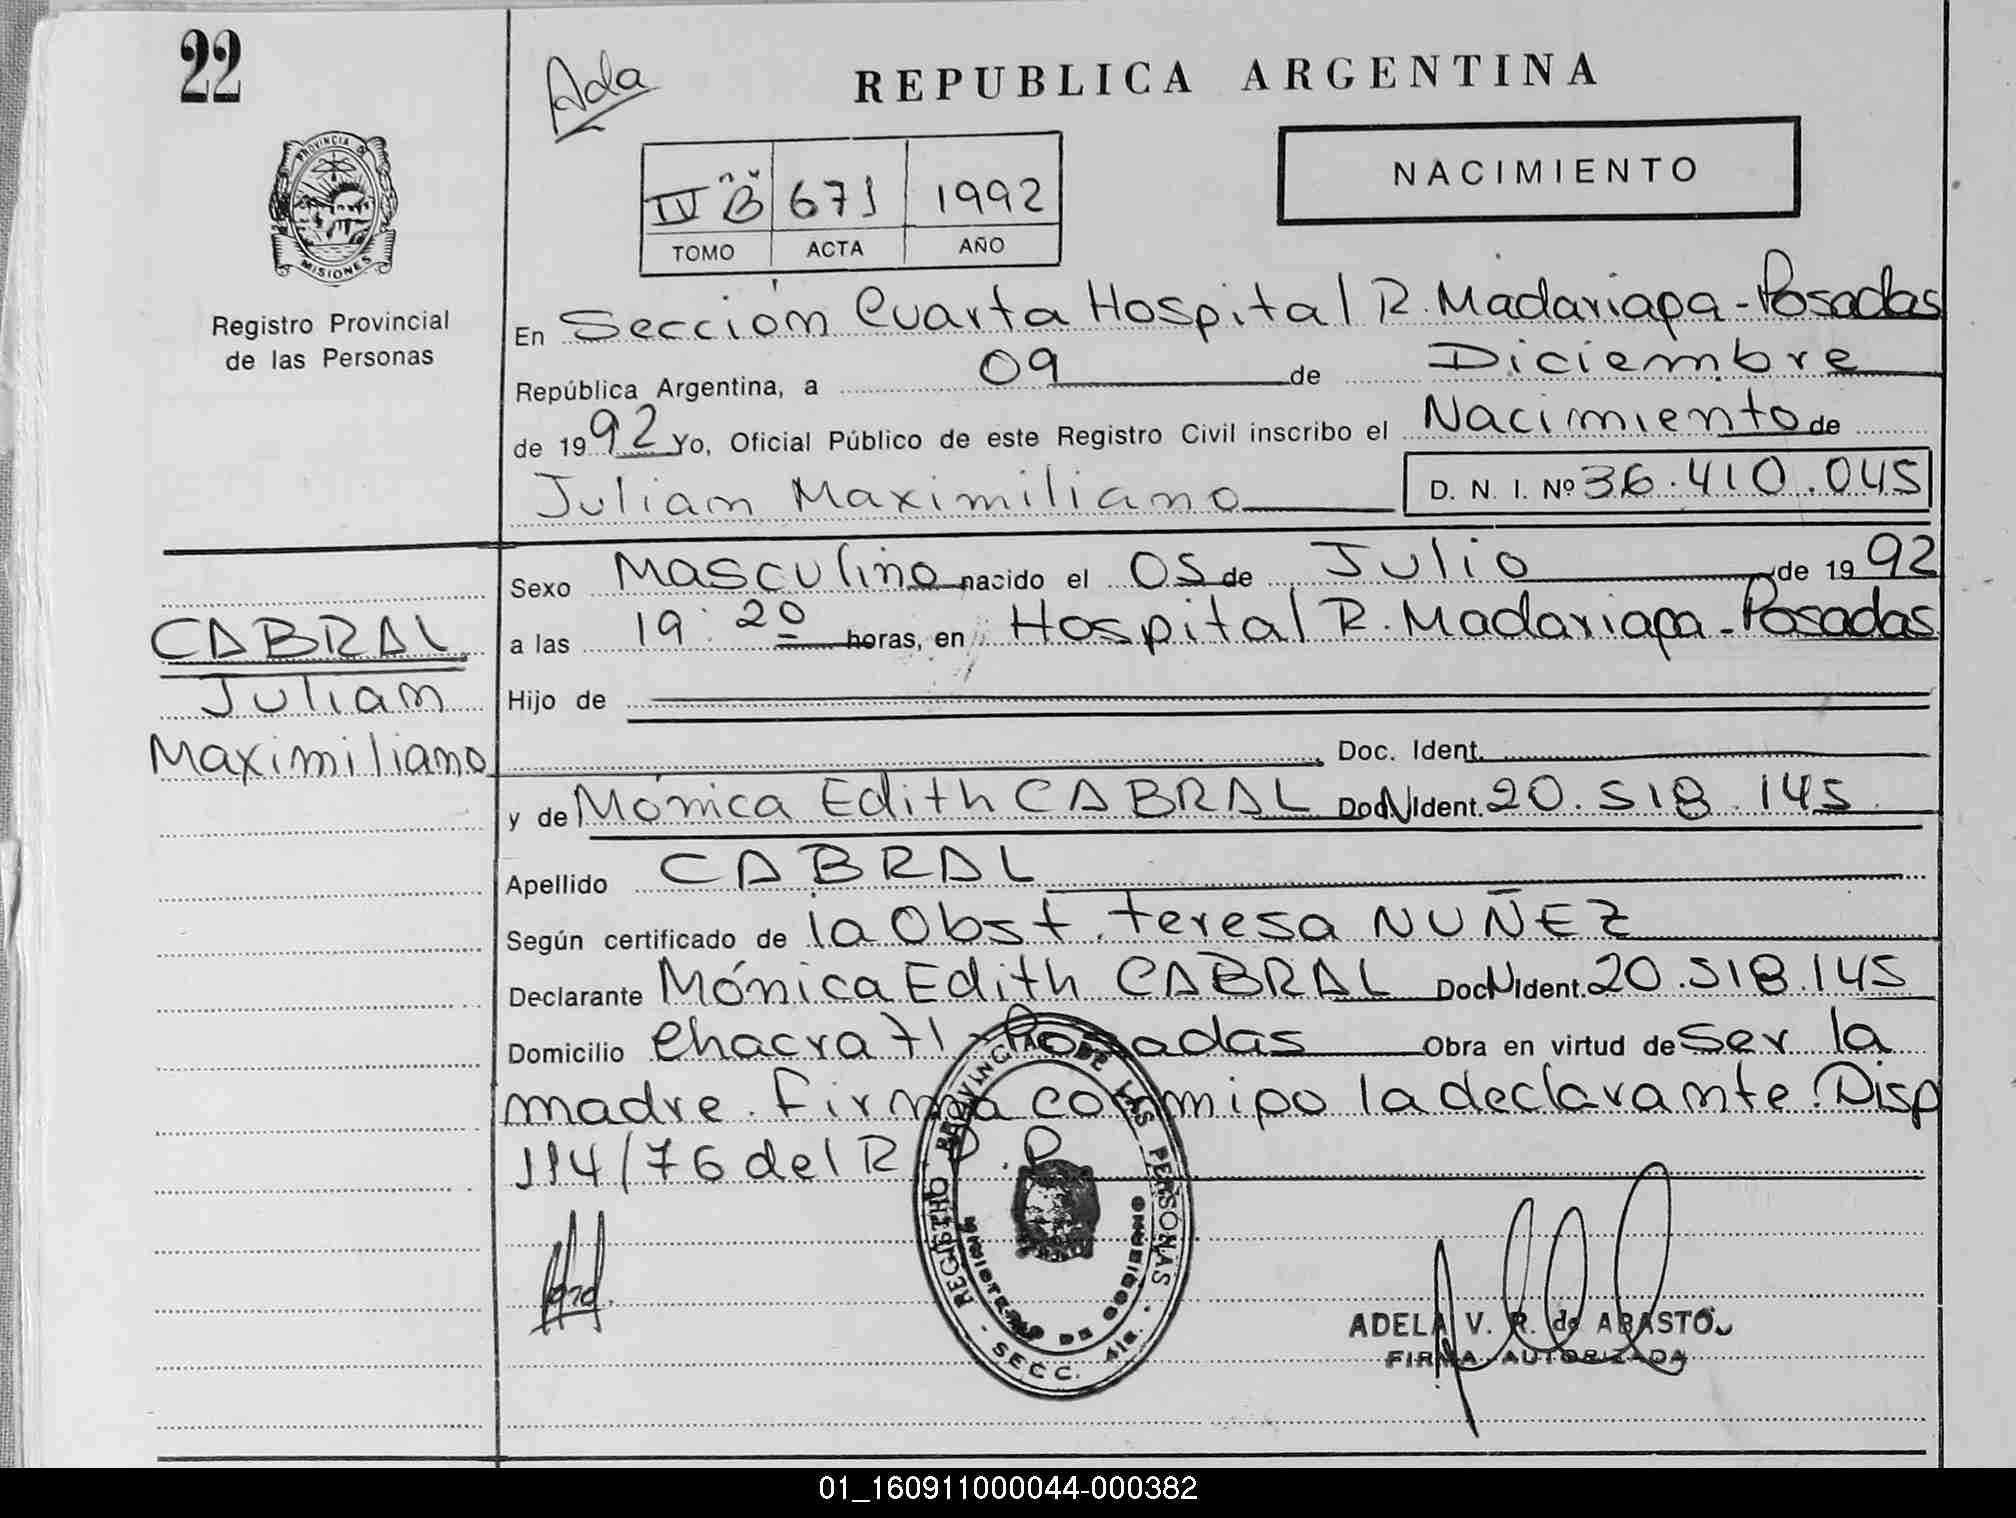 22
Ada
REPUBLICA ARGENTINA
PROVINCIA D
MISIONES
Registro Provincial
de las Personas
IV "B" 671 1992
TOMO ACTA AÑO
NACIMIENTO
En Sección Cuarta Hospital R. Madariaga - Posadas
República Argentina, a 09 de Diciembre
de 1992 Yo, Oficial Público de este Registro Civil inscribo el Nacimiento de
Julian Maximiliano D. N. I. Nº 36.410.045
CABRAL
Julian
Maximiliano
Sexo Masculino nacido el 05 de Julio de 1992
a las 19:20 horas, en Hospital R. Madariaga - Posadas
Hijo de
Doc. Ident.
y de Mónica Edith CABRAL Doc N Ident. 20.518.145
Apellido CABRAL
Según certificado de la Obst. Teresa NUÑEZ
Declarante Mónica Edith CABRAL Doc N Ident. 20.518.145
Domicilio Chacra 71 - Posadas Obra en virtud de ser la
madre. Firma conmigo la declarante. Disp
114/76 del R.P.P
REGISTRO PROVINCIAL DE LAS PERSONAS
MINISTERIO DE GOBIERNO
- SECC. 4ta. -
ADELA V. R. de ABASTO
FIRMA AUTORIZADA
01_160911000044-000382